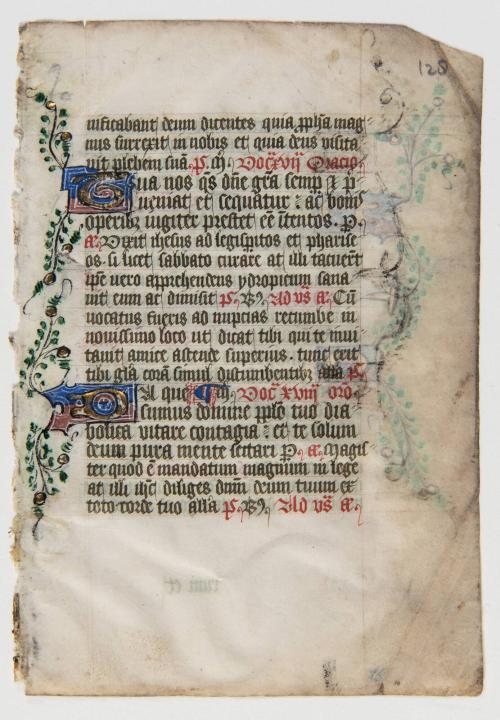 128
nificabant deum dicentes quia ppha mag
nus surrexit in nobis et quia deus visita
uit plebem suā. P. Doc̄ xvij Oracio
Tua nos q̄s dn̄e gr̄a semp̄ ⁊ p̄
ueniat et sequatur : ac bonis
operibꝫ iugiter prestet eē ītentos. P.
a͞e. Dixit ihesus ad legispitos et pharise
os. si licet sabbato curare at illi tacuer̄t
ip̄e uero apprehendens ydropicum sana
uit eum ac dimisit P. B Ad vs̄ a͞e. Cū
uocatus fueris ad nupcias recumbe in
nouissimo loco ut dicat tibi qui te inui
tauit amice ascende superius. tunc erit
tibi gl̄a corā simul discumbentibꝫ alla P.
Da que Doc̄ xviij oro
sumus domine pplo tuo dia
bolica vitare contagia : et te solum
deum pura mente sectari P. a͞e. Magis
ter quod ē mandatum magnum in lege
at illi ih̄c diliges dn̄m deum tuum ex
toto corde tuo alla P. B Ad vs̄ a͞e.